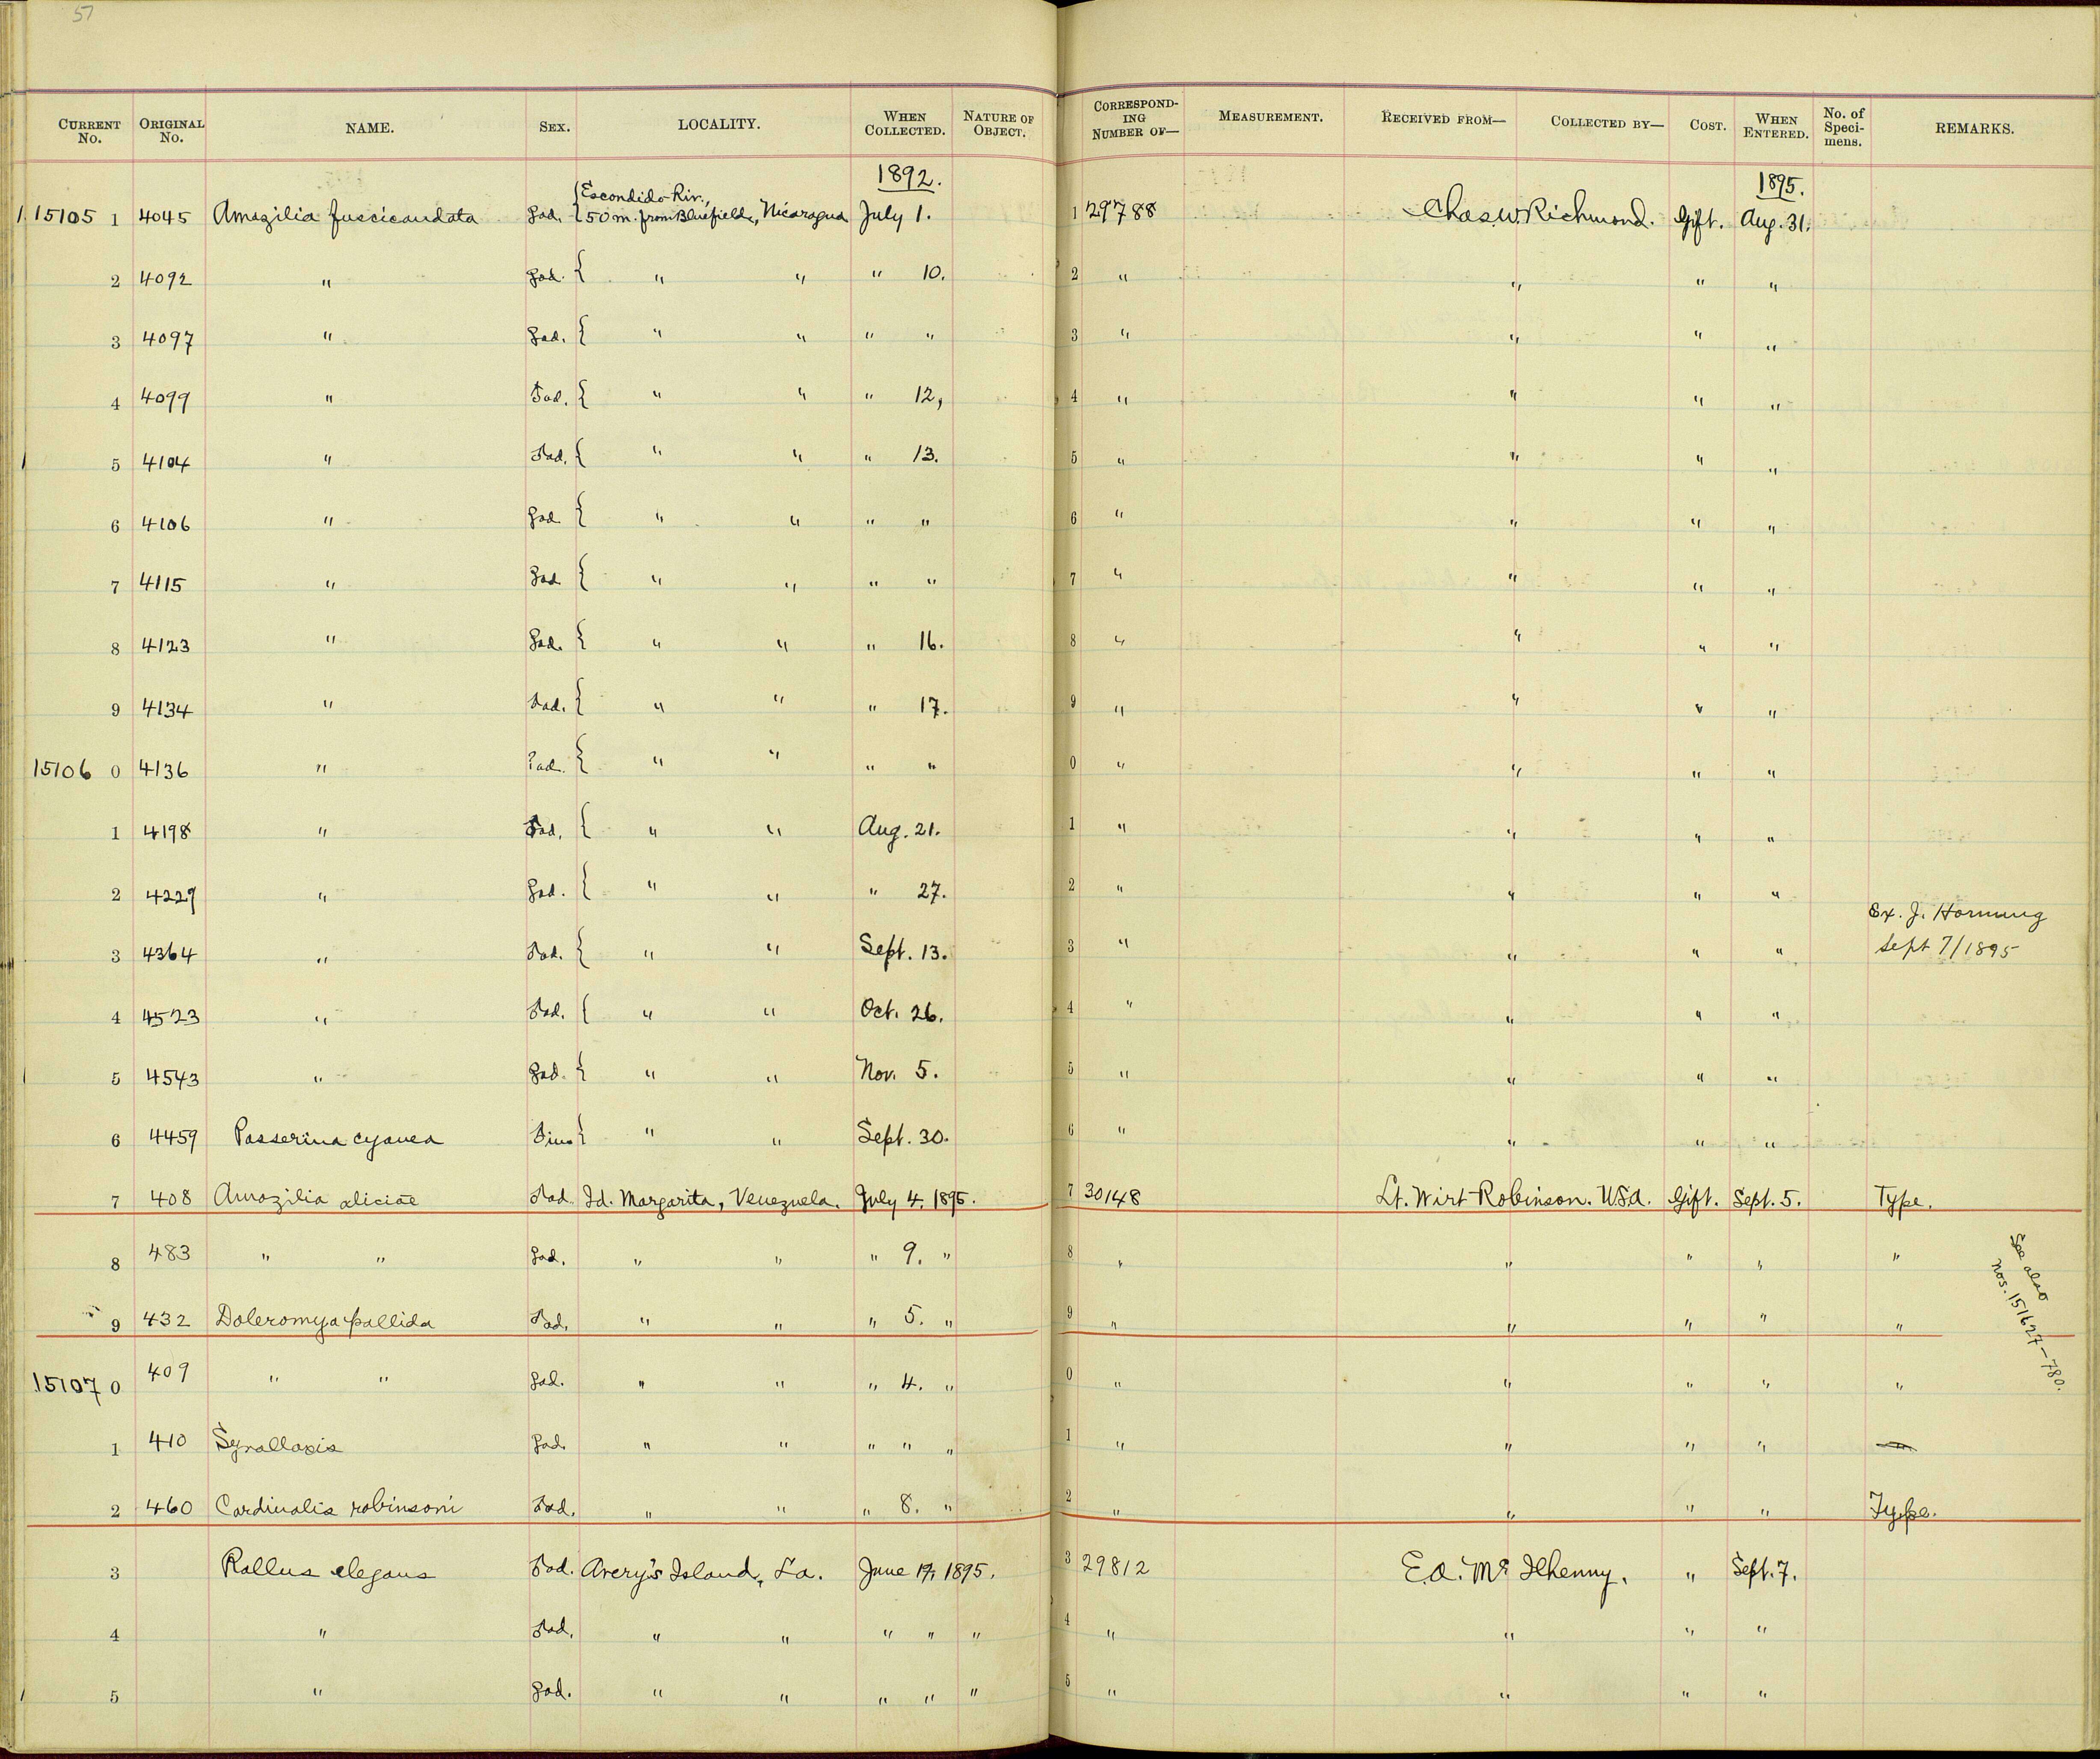 57
CURRENT No. ORIGINAL No. NAME. SEX. LOCALITY. WHEN COLLECTED. NATURE OF OBJECT. CORRESPONDING NUMBER OF— MEASUREMENT. RECEIVED FROM— COLLECTED BY— COST. WHEN ENTERED. No. of Specimens. REMARKS.
1892. 1895.
15105 1 4045 Amazilia fuscicaudata ad. Escondido Riv., 50 m. from Bluefields, Nicaragua July 1. 1 29788 Chas. W. Richmond. Gift. Aug. 31.
2 4092 " ad. " " " 10. 2 " " " "
3 4097 " ad. " " " " 3 " " " "
4 4099 " ad. " " " 12, 4 " " " "
5 4104 " ad. " " " 13. 5 " " " "
6 4106 " ad. " " " " 6 " " " "
7 4115 " ad. " " " " 7 " " " "
8 4123 " ad. " " " 16. 8 " " " "
9 4134 " ad. " " " 17. 9 " " " "
15106 0 4136 " ad. " " " " 0 " " " "
1 4198 " ad. " " Aug. 21. 1 " " " "
2 4229 " ad. " " " 27. 2 " " " "
Ex. J. Hornung
3 4364 " ad. " " Sept. 13. 3 " " " " Sept 7/1895
4 4523 " ad. " " Oct. 26. 4 " " " "
5 4543 " ad. " " Nov. 5. 5 " " " "
6 4459 Passerina cyanea " " Sept. 30. 6 " " " "
7 408 Amazilia aliciae ad. Id. Margarita, Venezuela. July 4. 1895. 7 30148 Lt. Wirt Robinson. U.S.A. Gift. Sept. 5. Type.
8 483 " " ad. " " " 9. " 8 " " " " "
9 432 Doleromya pallida ad. " " " 5. " 9 " " " " "
See also
nos. 151627-780.
15107 0 409 " " ad. " " " 4. " 0 " " " " "
1 410 Synallaxis ad. " " " " " 1 " " " "
2 460 Cardinalis robinsoni ad. " " " 8. " 2 " " " " Type.
3 Rallus elegans ad. Avery's Island, La. June 17, 1895. 3 29812 E.A. McIlhenny. " Sept. 7.
4 " ad. " " " " " 4 " " " "
5 " ad. " " " " " 5 " " " "